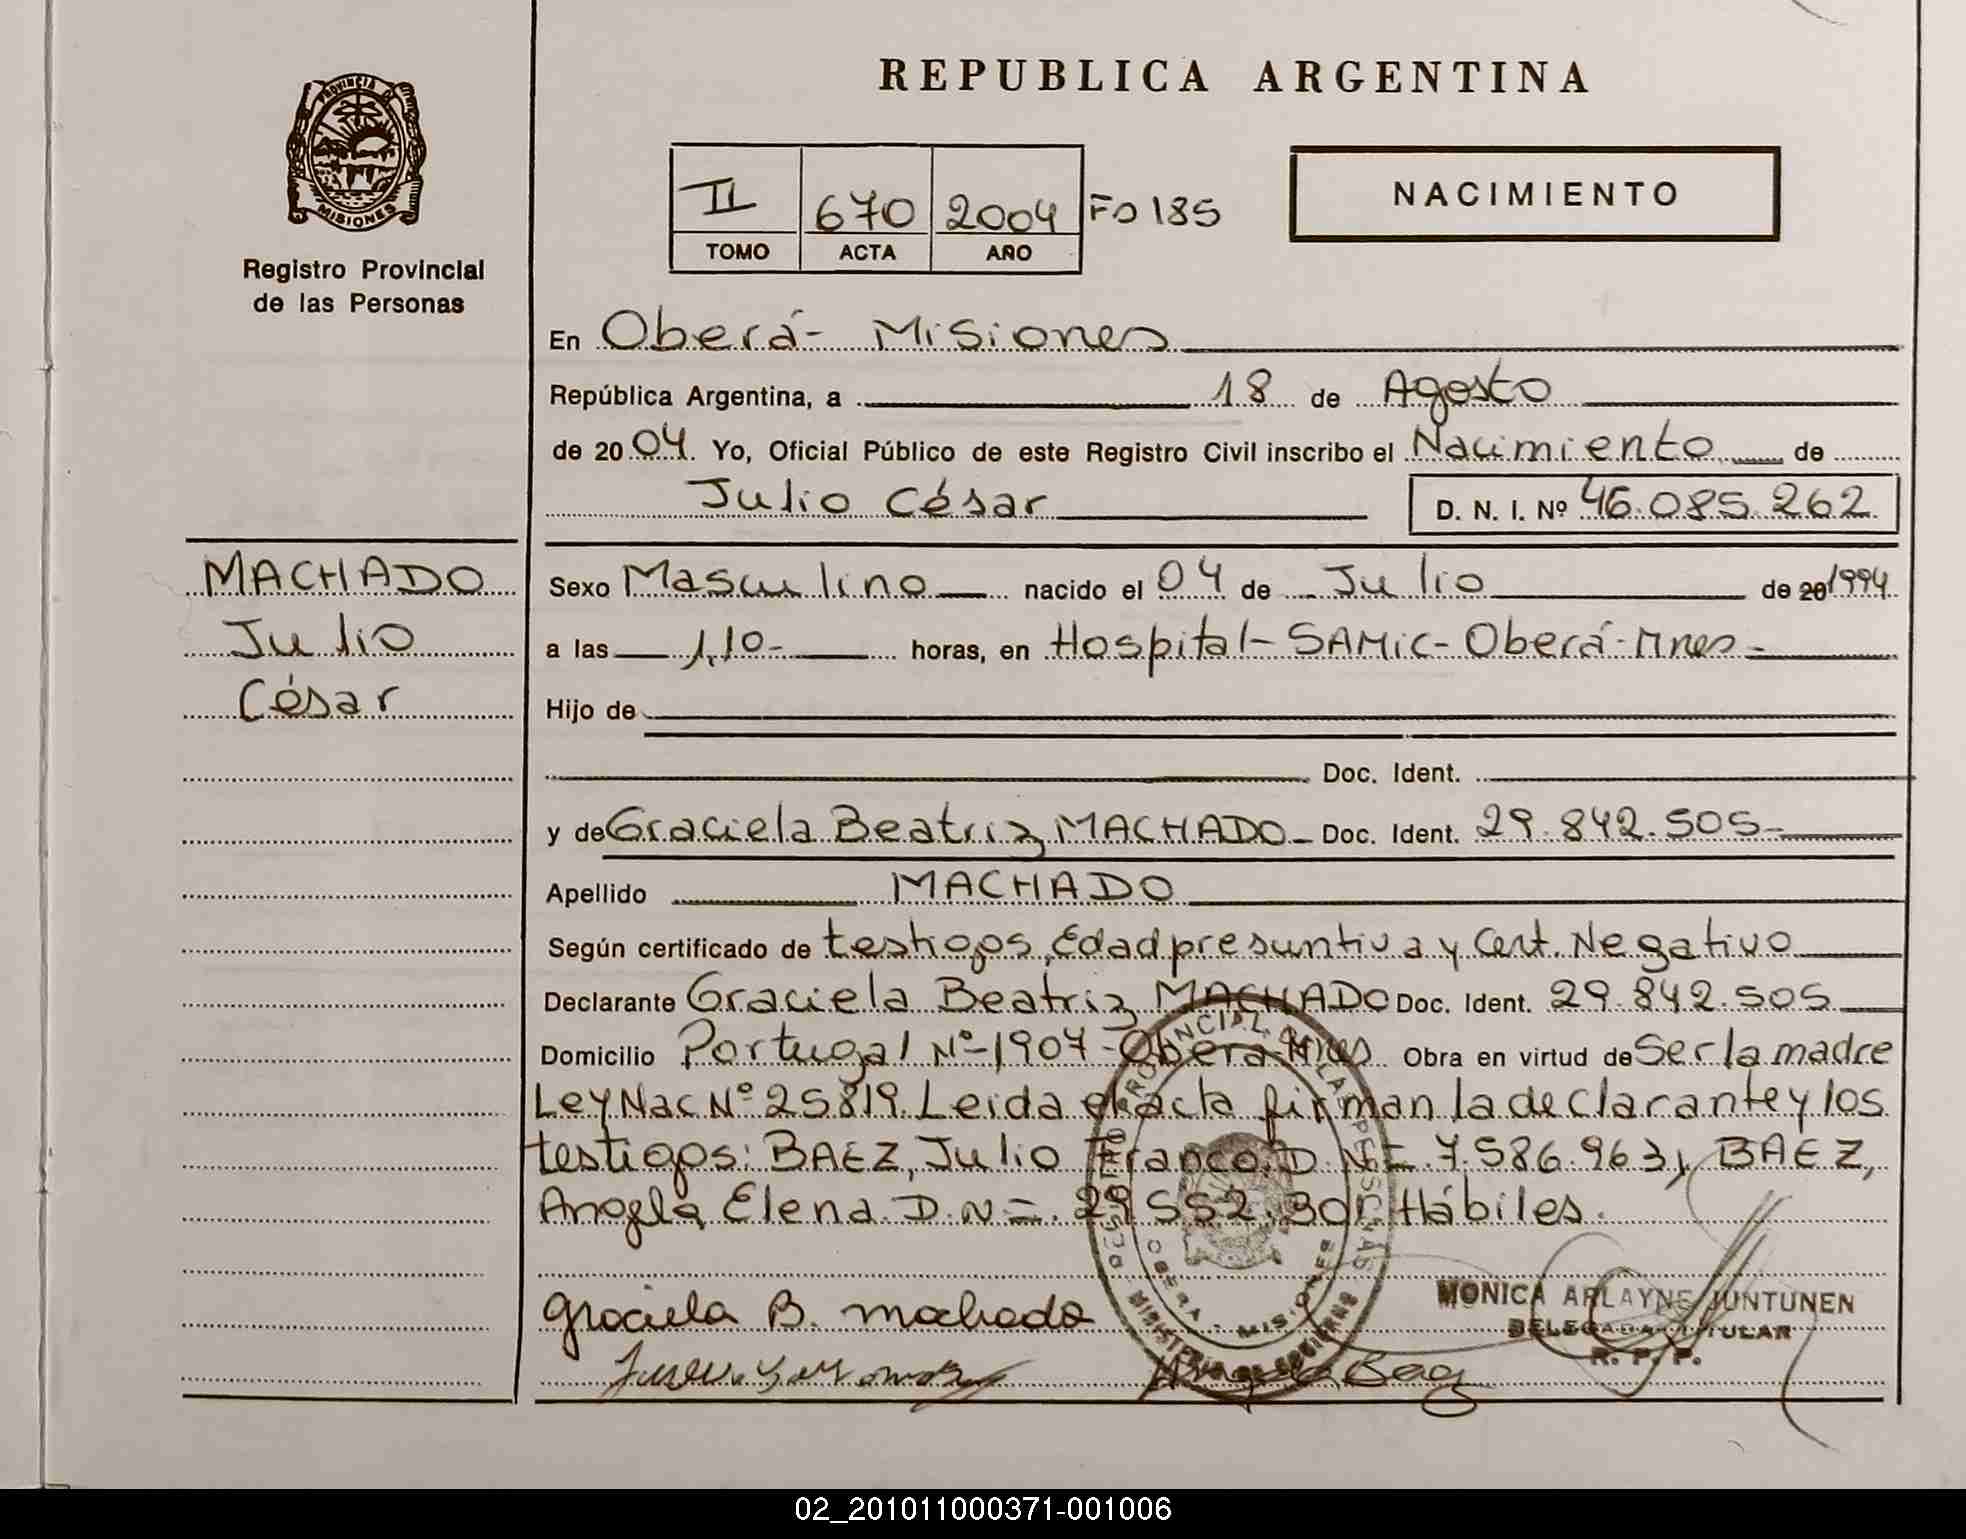 REPUBLICA ARGENTINA
PROVINCIA DE
MISIONES
Registro Provincial
de las Personas
II 670 2004 Fo 185
TOMO ACTA AÑO
NACIMIENTO
En Oberá- Misiones
República Argentina, a 18 de Agosto
de 20 04. Yo, Oficial Público de este Registro Civil inscribo el Nacimiento de
Julio César D. N. I. Nº 46.085.262
MACHADO
Julio
César
Sexo Masculino nacido el 04 de Julio de 20 1994
a las 1,10- horas, en Hospital- SAMIC- Oberá-Mnes-
Hijo de
Doc. Ident.
y de Graciela Beatriz MACHADO- Doc. Ident. 29.842.505-
Apellido MACHADO
Según certificado de testigos, Edad presuntiva y Cert. Negativo
Declarante Graciela Beatriz MACHADO Doc. Ident. 29.842.505
Domicilio Portugal Nº-1907-Oberá-Mnes Obra en virtud de Ser la madre
Ley Nac Nº 25819. Leida el acta firman la declarante y los
testigos: BAEZ, Julio Franco D.N.I. 7.586.963, BAEZ,
Angela Elena D.N.I. 29.552.301 Hábiles.
Graciela B. Machado
MONICA ARLAYNE JUNTUNEN
DELEGADA TITULAR
R. P. P.
OBERA - MISIONES
MINISTERIO DE GOBIERNO
02_201011000371-001006